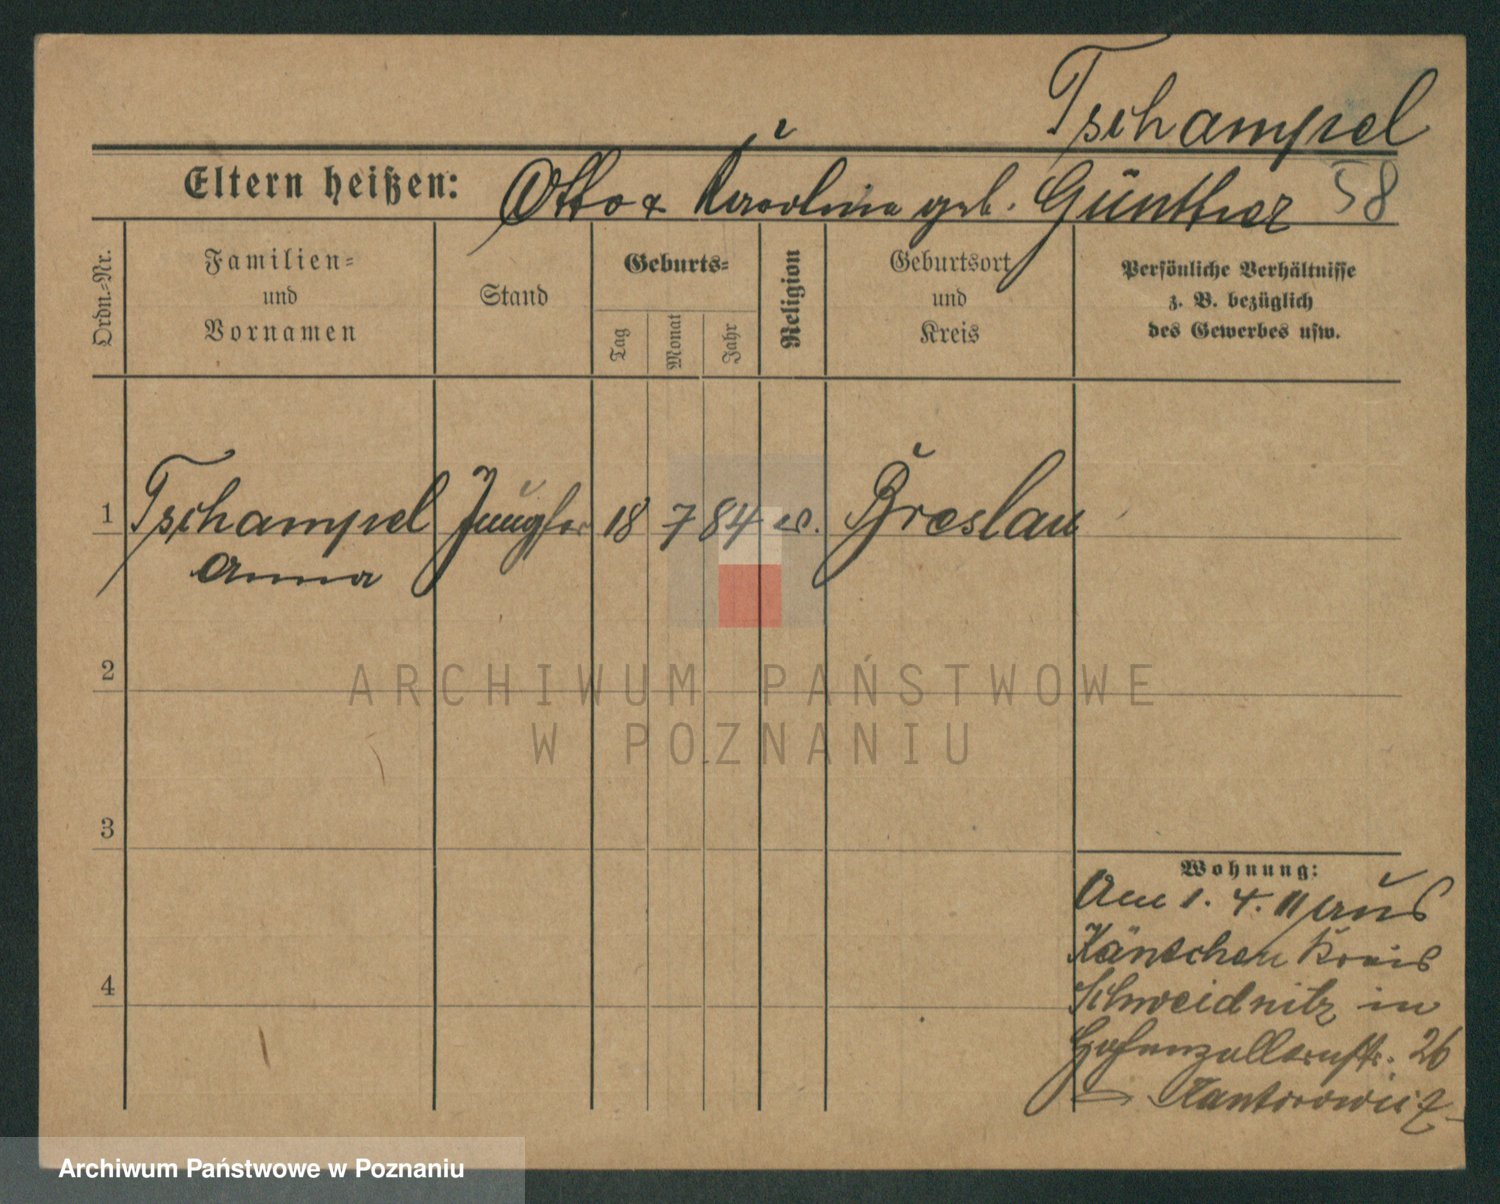 Tschampel
Eltern heißen: Otto & Karolina geb. Günther 58
Ordn.-Nr.
Familien- und Vornamen
Stand
Geburts-
Tag
Monat
Jahr
Religion
Geburtsort und Kreis
Persönliche Verhältnisse
z. B. bezüglich
des Gewerbes usw.
1 Tschampel Jungfer 18 7 84 ev. Breslau
Anna
2
3
4
Wohnung:
Am 1. 4. 11 aus
Käntchen Kreis
Schweidnitz in
Hohenzollernstr. 26
Kantorowicz
ARCHIWUM PAŃSTWOWE
W POZNANIU
Archiwum Państwowe w Poznaniu